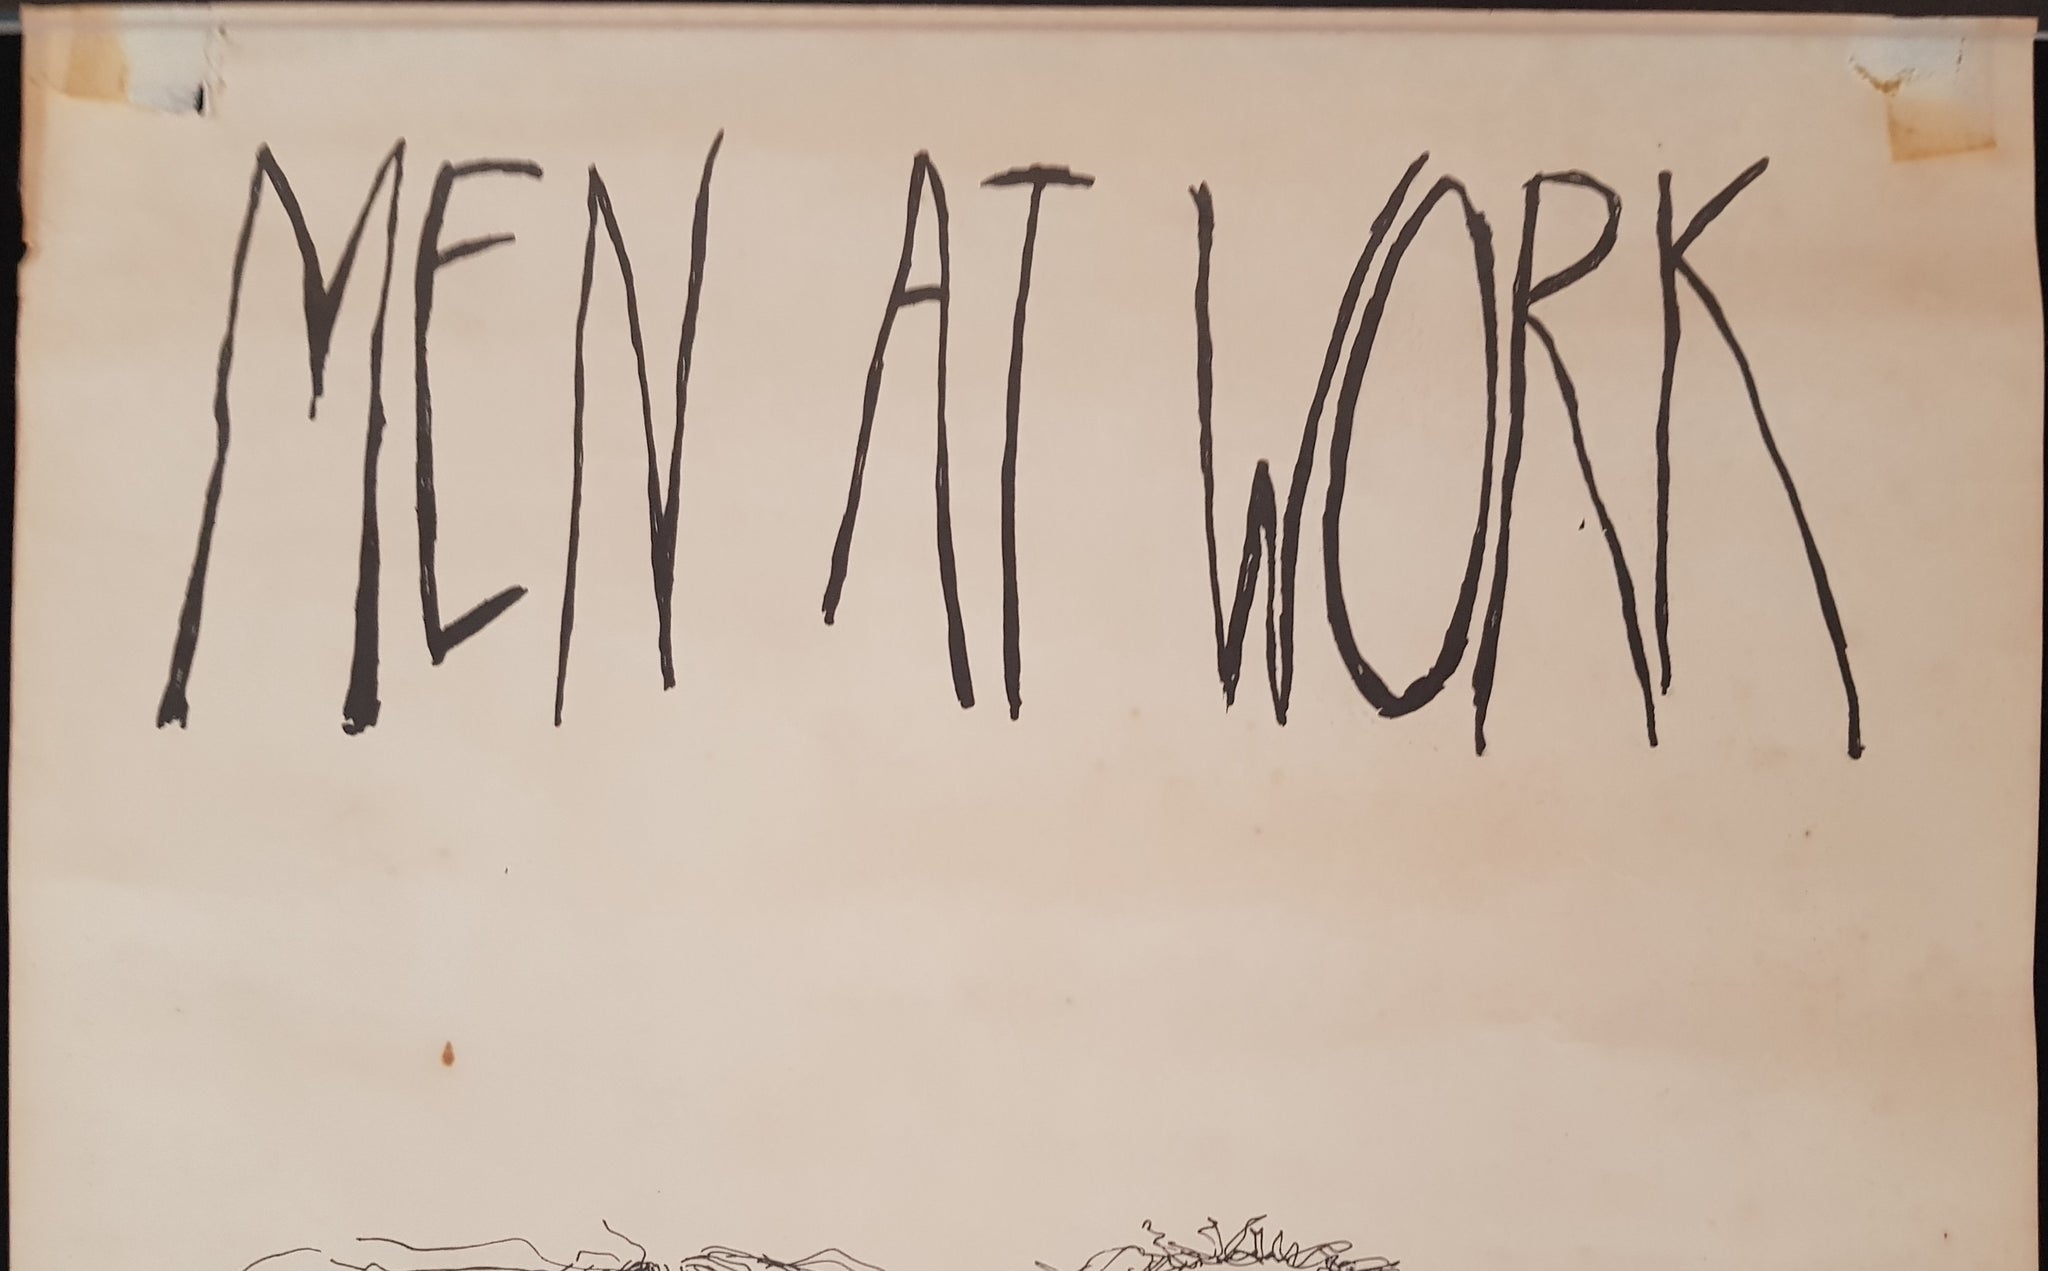 MEN AT WORK